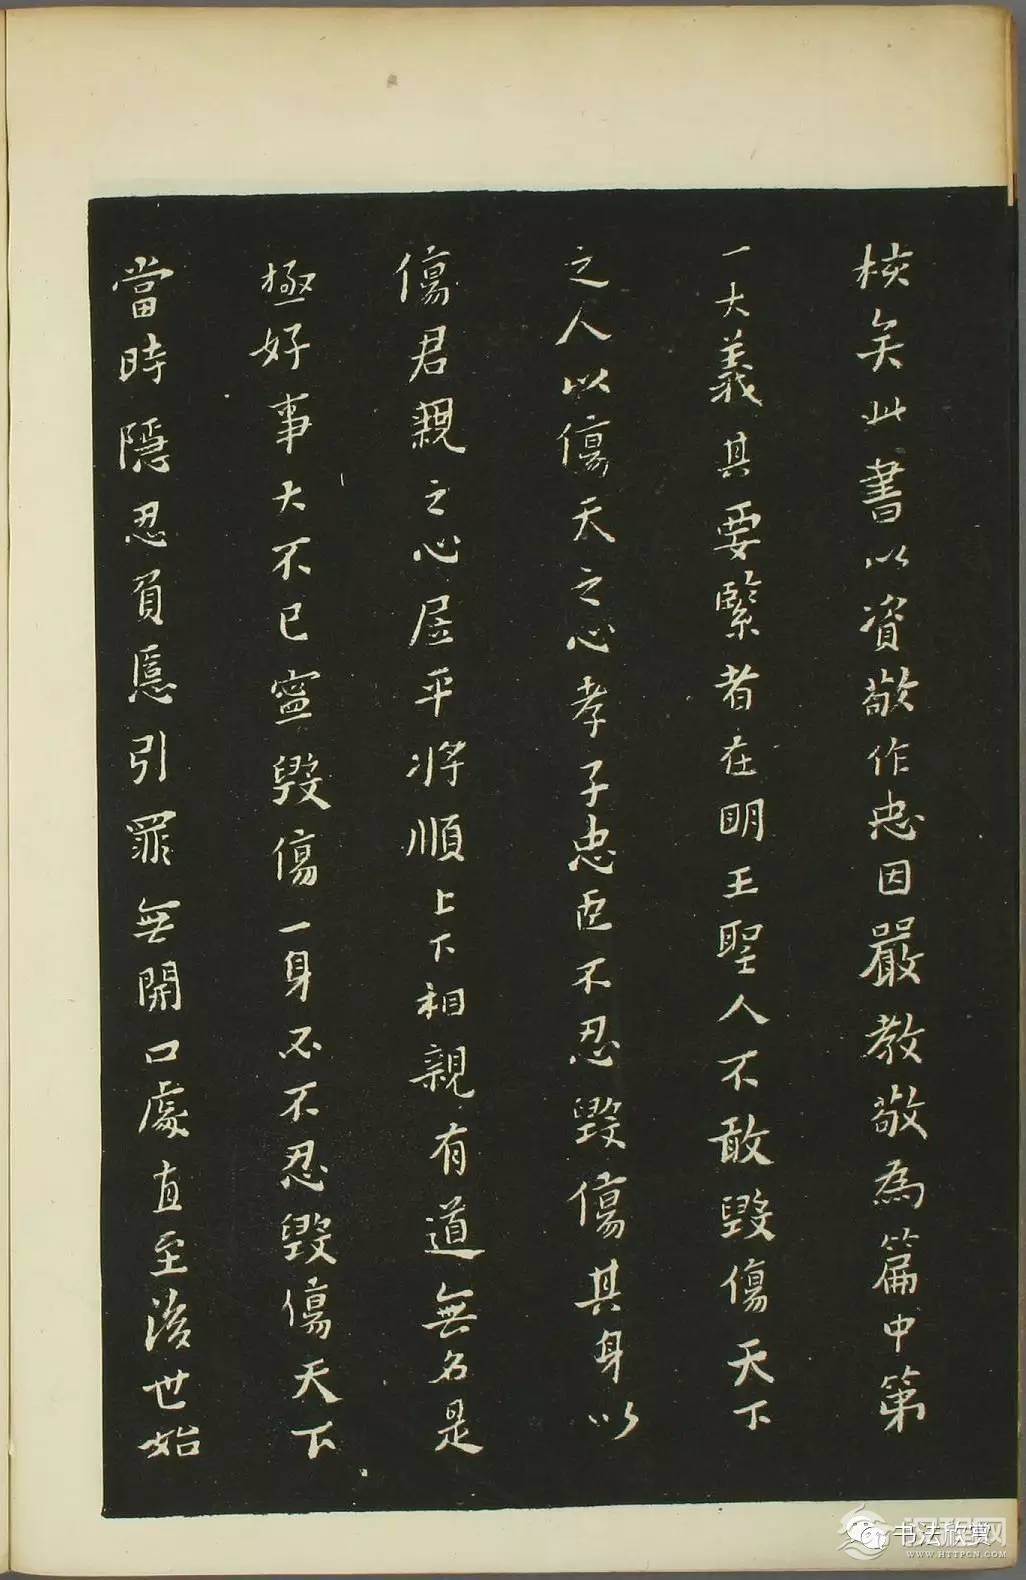 核矣此書以資敬作忠因嚴教敬為篇中第
一大義其要緊者在明王聖人不敢毀傷天下
之人以傷天之心孝子忠臣不忍毀傷其身以
傷君親之心居平將順上下相親有道無名是
極好事大不已寧毀傷一身必不忍毀傷天下
當時隱忍負慝引罪無開口處直至後世始
书法欣赏
WWW.HTTPCN.COM